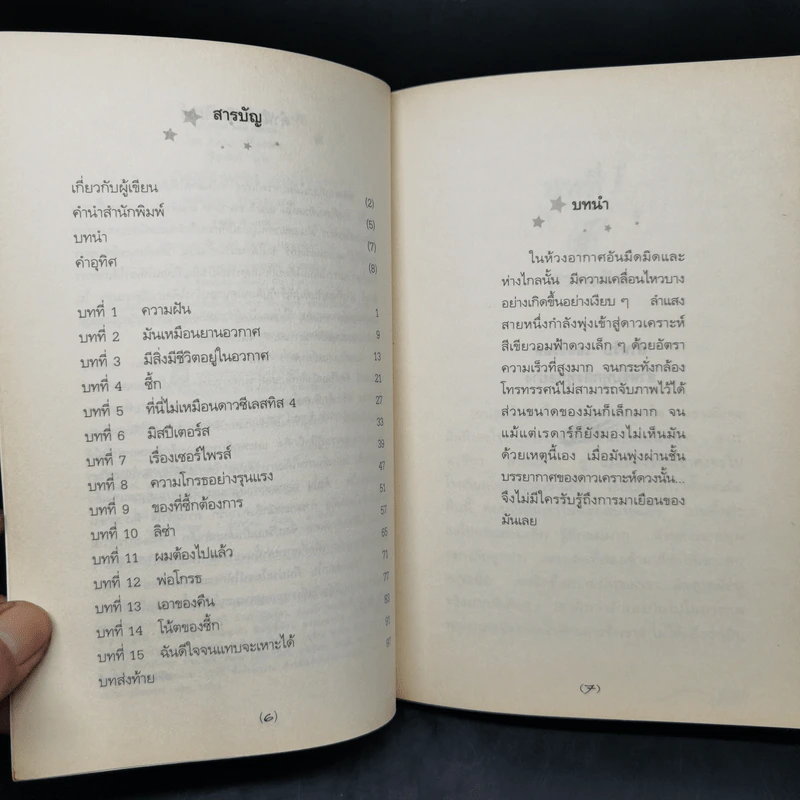 สารบัญ
เกี่ยวกับผู้เขียน (2)
คำนำสำนักพิมพ์ (5)
บทนำ (7)
คำอุทิศ (8)
บทที่ 1 ความฝัน 1
บทที่ 2 มันเหมือนยานอวกาศ 9
บทที่ 3 มีสิ่งมีชีวิตอยู่ในอวกาศ 13
บทที่ 4 ซี้ก 21
บทที่ 5 ที่นี่ไม่เหมือนดาวซีเลสทิส 4 27
บทที่ 6 มิสปีเตอร์ส 33
บทที่ 7 เรื่องเซอร์ไพรส์ 39
บทที่ 8 ความโกรธอย่างรุนแรง 47
บทที่ 9 ของที่ซี้กต้องการ 51
บทที่ 10 ลิซ่า 57
บทที่ 11 ผมต้องไปแล้ว 65
บทที่ 12 พ่อโกรธ 71
บทที่ 13 เอาของคืน 77
บทที่ 14 โน้ตของซี้ก 83
บทที่ 15 ฉันดีใจจนแทบจะเหาะได้ 91
บทส่งท้าย
(6)
บทนำ
ในห้วงอากาศอันมืดมิดและ
ห่างไกลนั้น มีความเคลื่อนไหวบาง
อย่างเกิดขึ้นอย่างเงียบ ๆ ลำแสง
สายหนึ่งกำลังพุ่งเข้าสู่ดาวเคราะห์
สีเขียวอมฟ้าดวงเล็ก ๆ ด้วยอัตรา
ความเร็วที่สูงมาก จนกระทั่งกล้อง
โทรทรรศน์ไม่สามารถจับภาพไว้ได้
ส่วนขนาดของมันก็เล็กมาก จน
แม้แต่เรดาร์ก็ยังมองไม่เห็นมัน
ด้วยเหตุนี้เอง เมื่อมันพุ่งผ่านชั้น
บรรยากาศของดาวเคราะห์ดวงนั้น...
จึงไม่มีใครรับรู้ถึงการมาเยือนของ
มันเลย
(7)